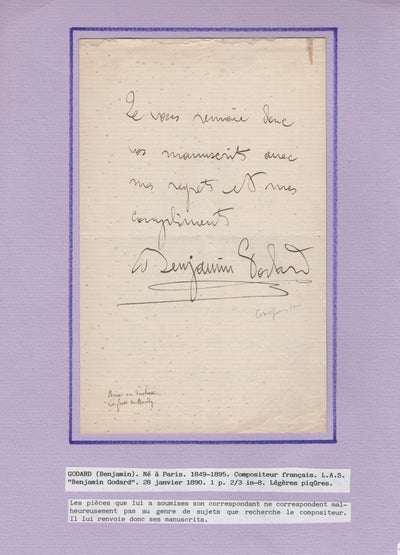 Je vous renvoie donc
vos manuscrits avec
mes regrets et mes
compliments
Benjamin Godard
GODARD (Benjamin). Né à Paris. 1849-1895. Compositeur français. L.A.S.
"Benjamin Godard". 28 janvier 1890. 1 p. 2/3 in-8. Légères piqûres.
Les pièces que lui a soumises son correspondant ne correspondent mal-
heureusement pas au genre de sujets que recherche le compositeur.
Il lui renvoie donc ses manuscrits.